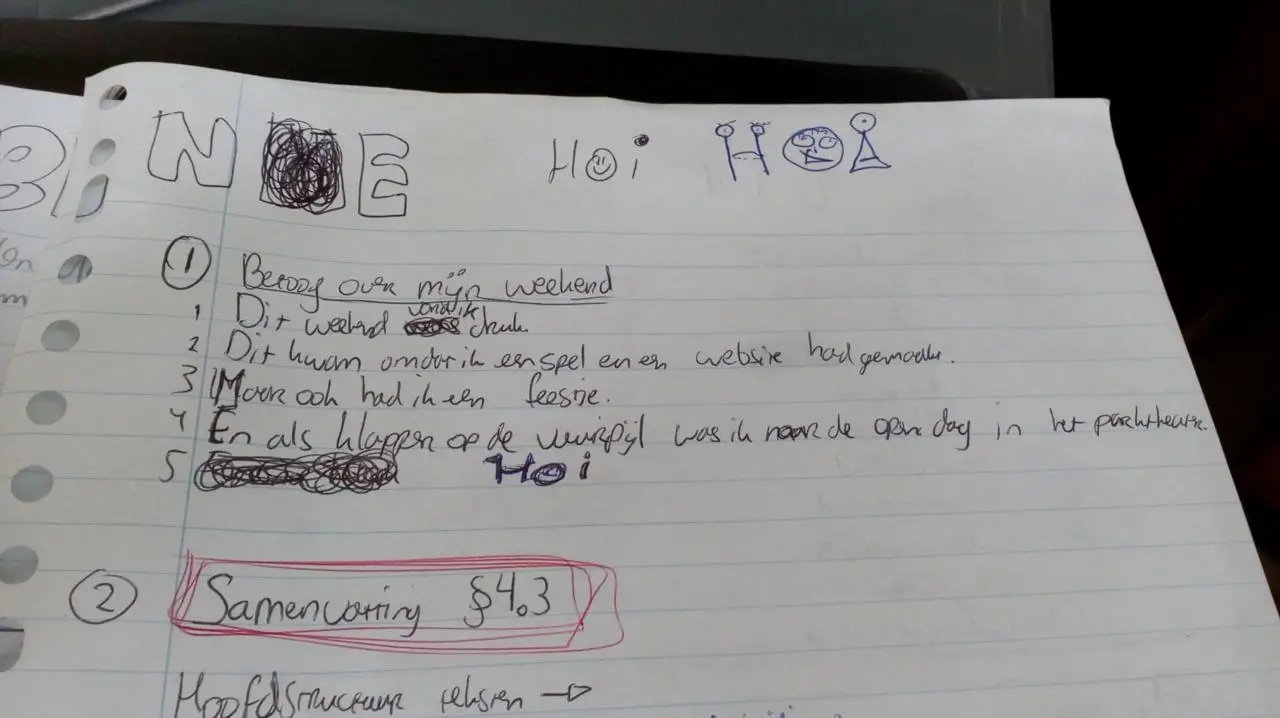 B
N E Hoi HOi
1 Betoog over mijn weekend
1 Dit weekend vond ik druk.
2 Dit kwam omdat ik een spel en een website had gemaakt.
3 Maar ook had ik een feestje.
4 En als klapper op de vuurpijl was ik naar de open dag in het parktheater.
5 Hoi
2 Samenvatting §4.3
Hoofdstructuur teksten →